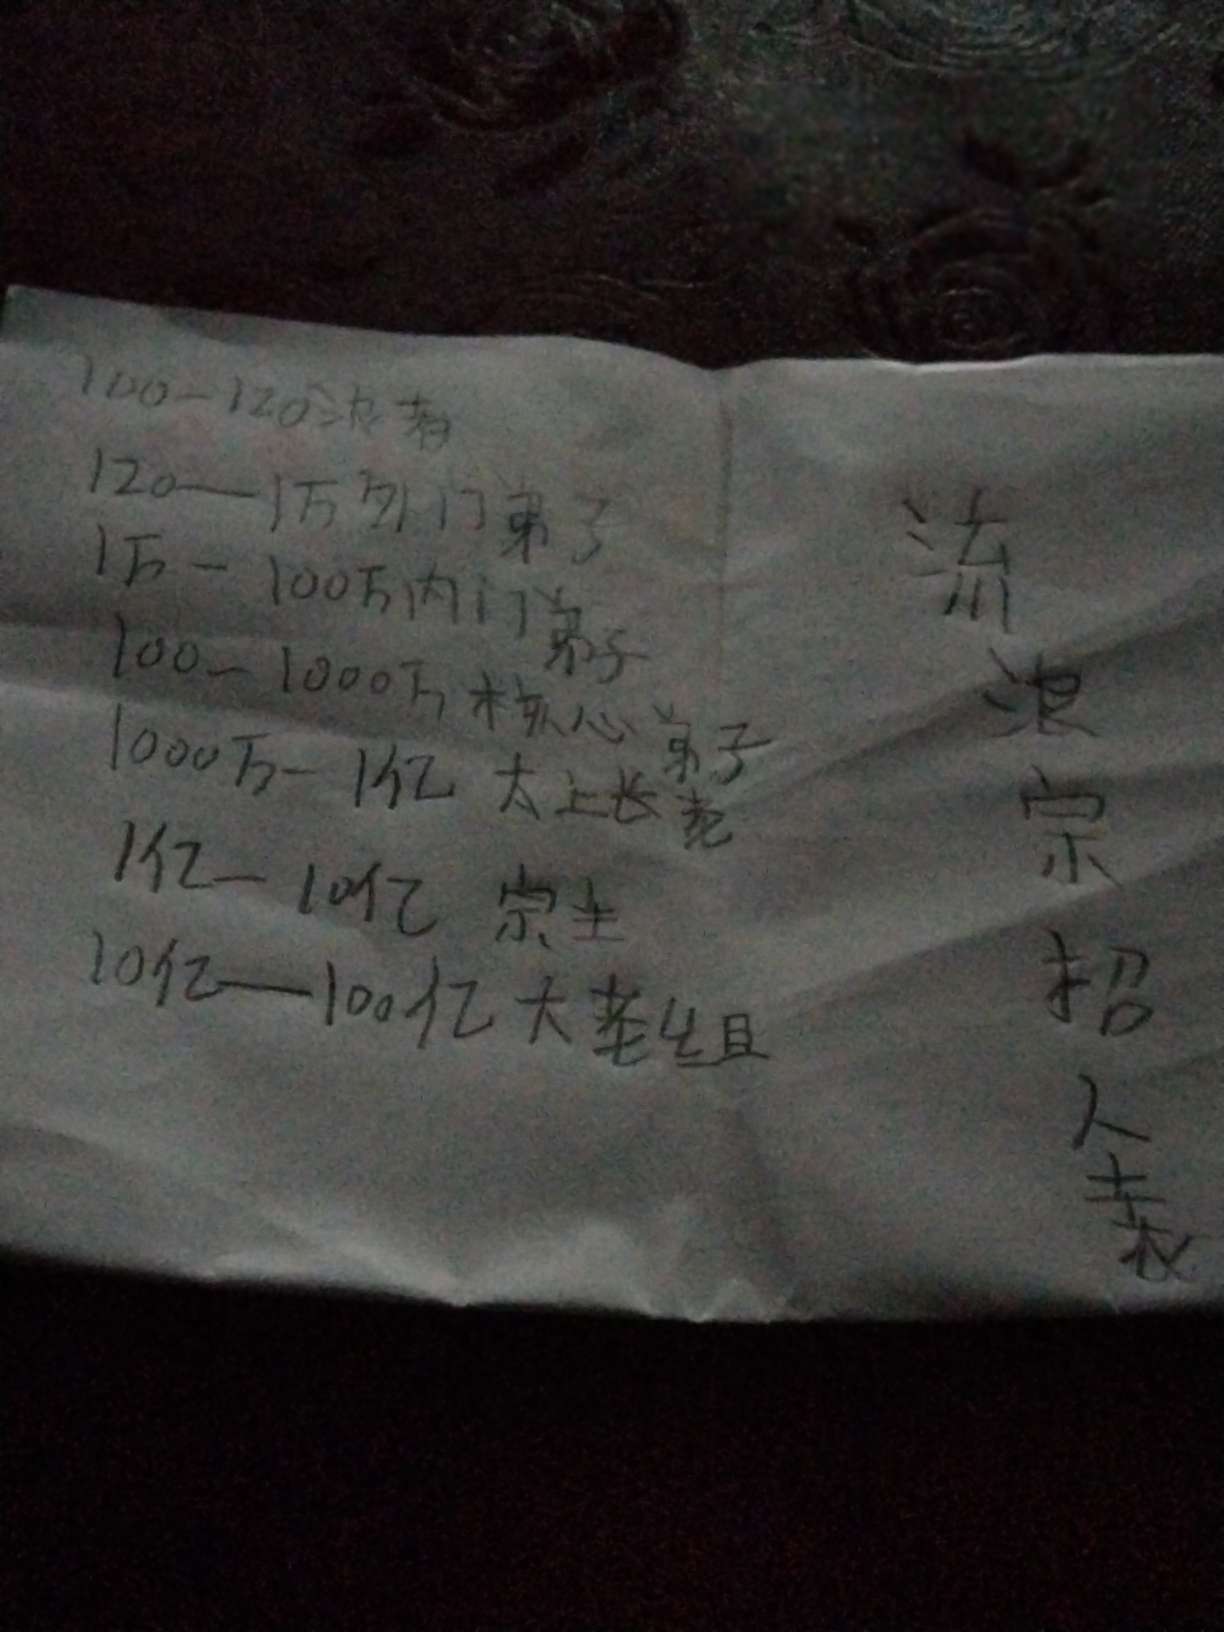 100-120
120—1万外门弟子
1万-100万内门弟子
100-1000万核心弟子
1000万-1亿 太上长老
1亿-10亿 宗主
10亿—100亿 大老组
流浪宗招人表